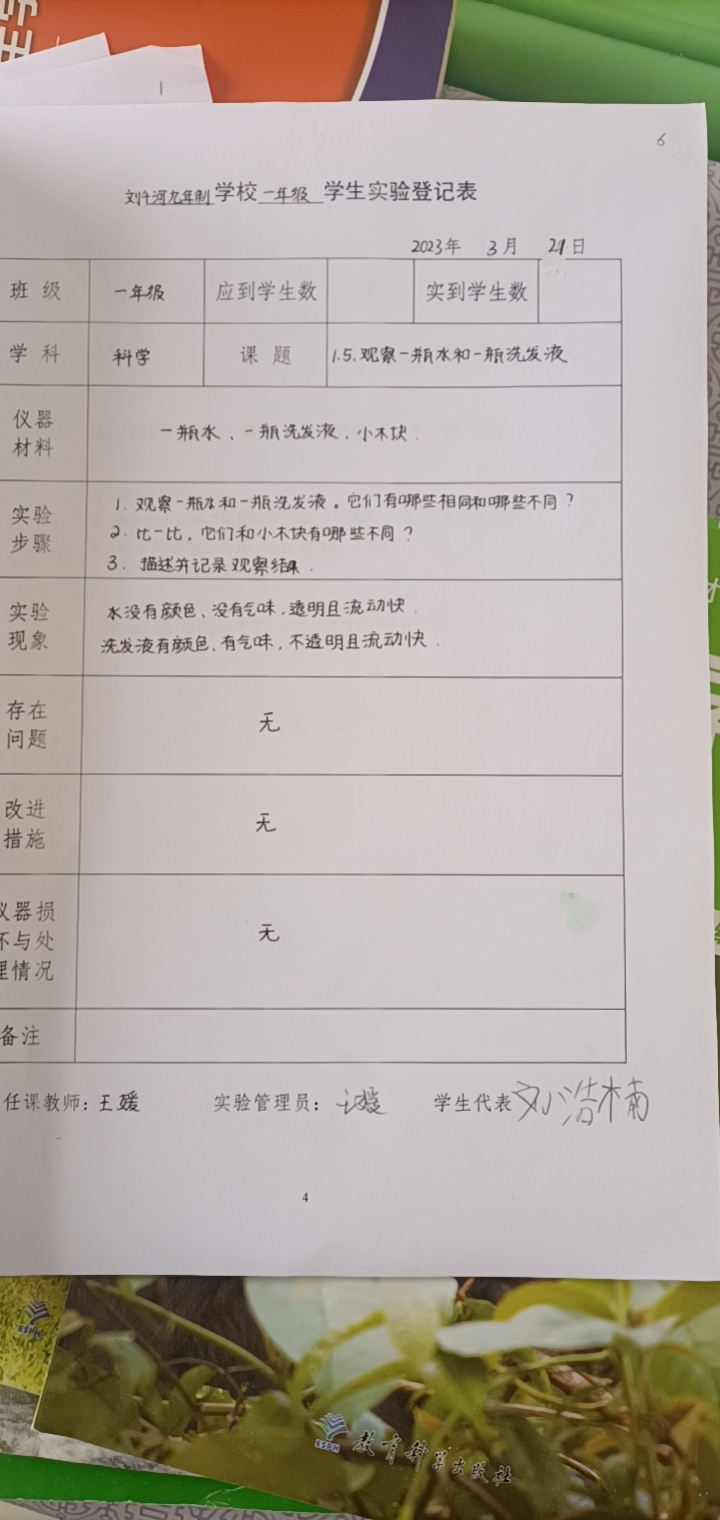 6
刘千河九年制学校一年级学生实验登记表
2023年 3月 21日
班 级 一年级 应到学生数 实到学生数
学 科 科学 课 题 1.5.观察一瓶水和一瓶洗发液
仪器材料 一瓶水、一瓶洗发液、小木块.
实验步骤
1. 观察一瓶水和一瓶洗发液。它们有哪些相同和哪些不同?
2. 比一比,它们和小木块有哪些不同?
3. 描述并记录观察结果.
实验现象
水没有颜色、没有气味,透明且流动快.
洗发液有颜色、有气味,不透明且流动快.
存在问题 无
改进措施 无
仪器损坏与处理情况 无
备注
任课教师:王媛 实验管理员: 学生代表 刘浩楠
4
ESPH
ESPH 教育科学出版社